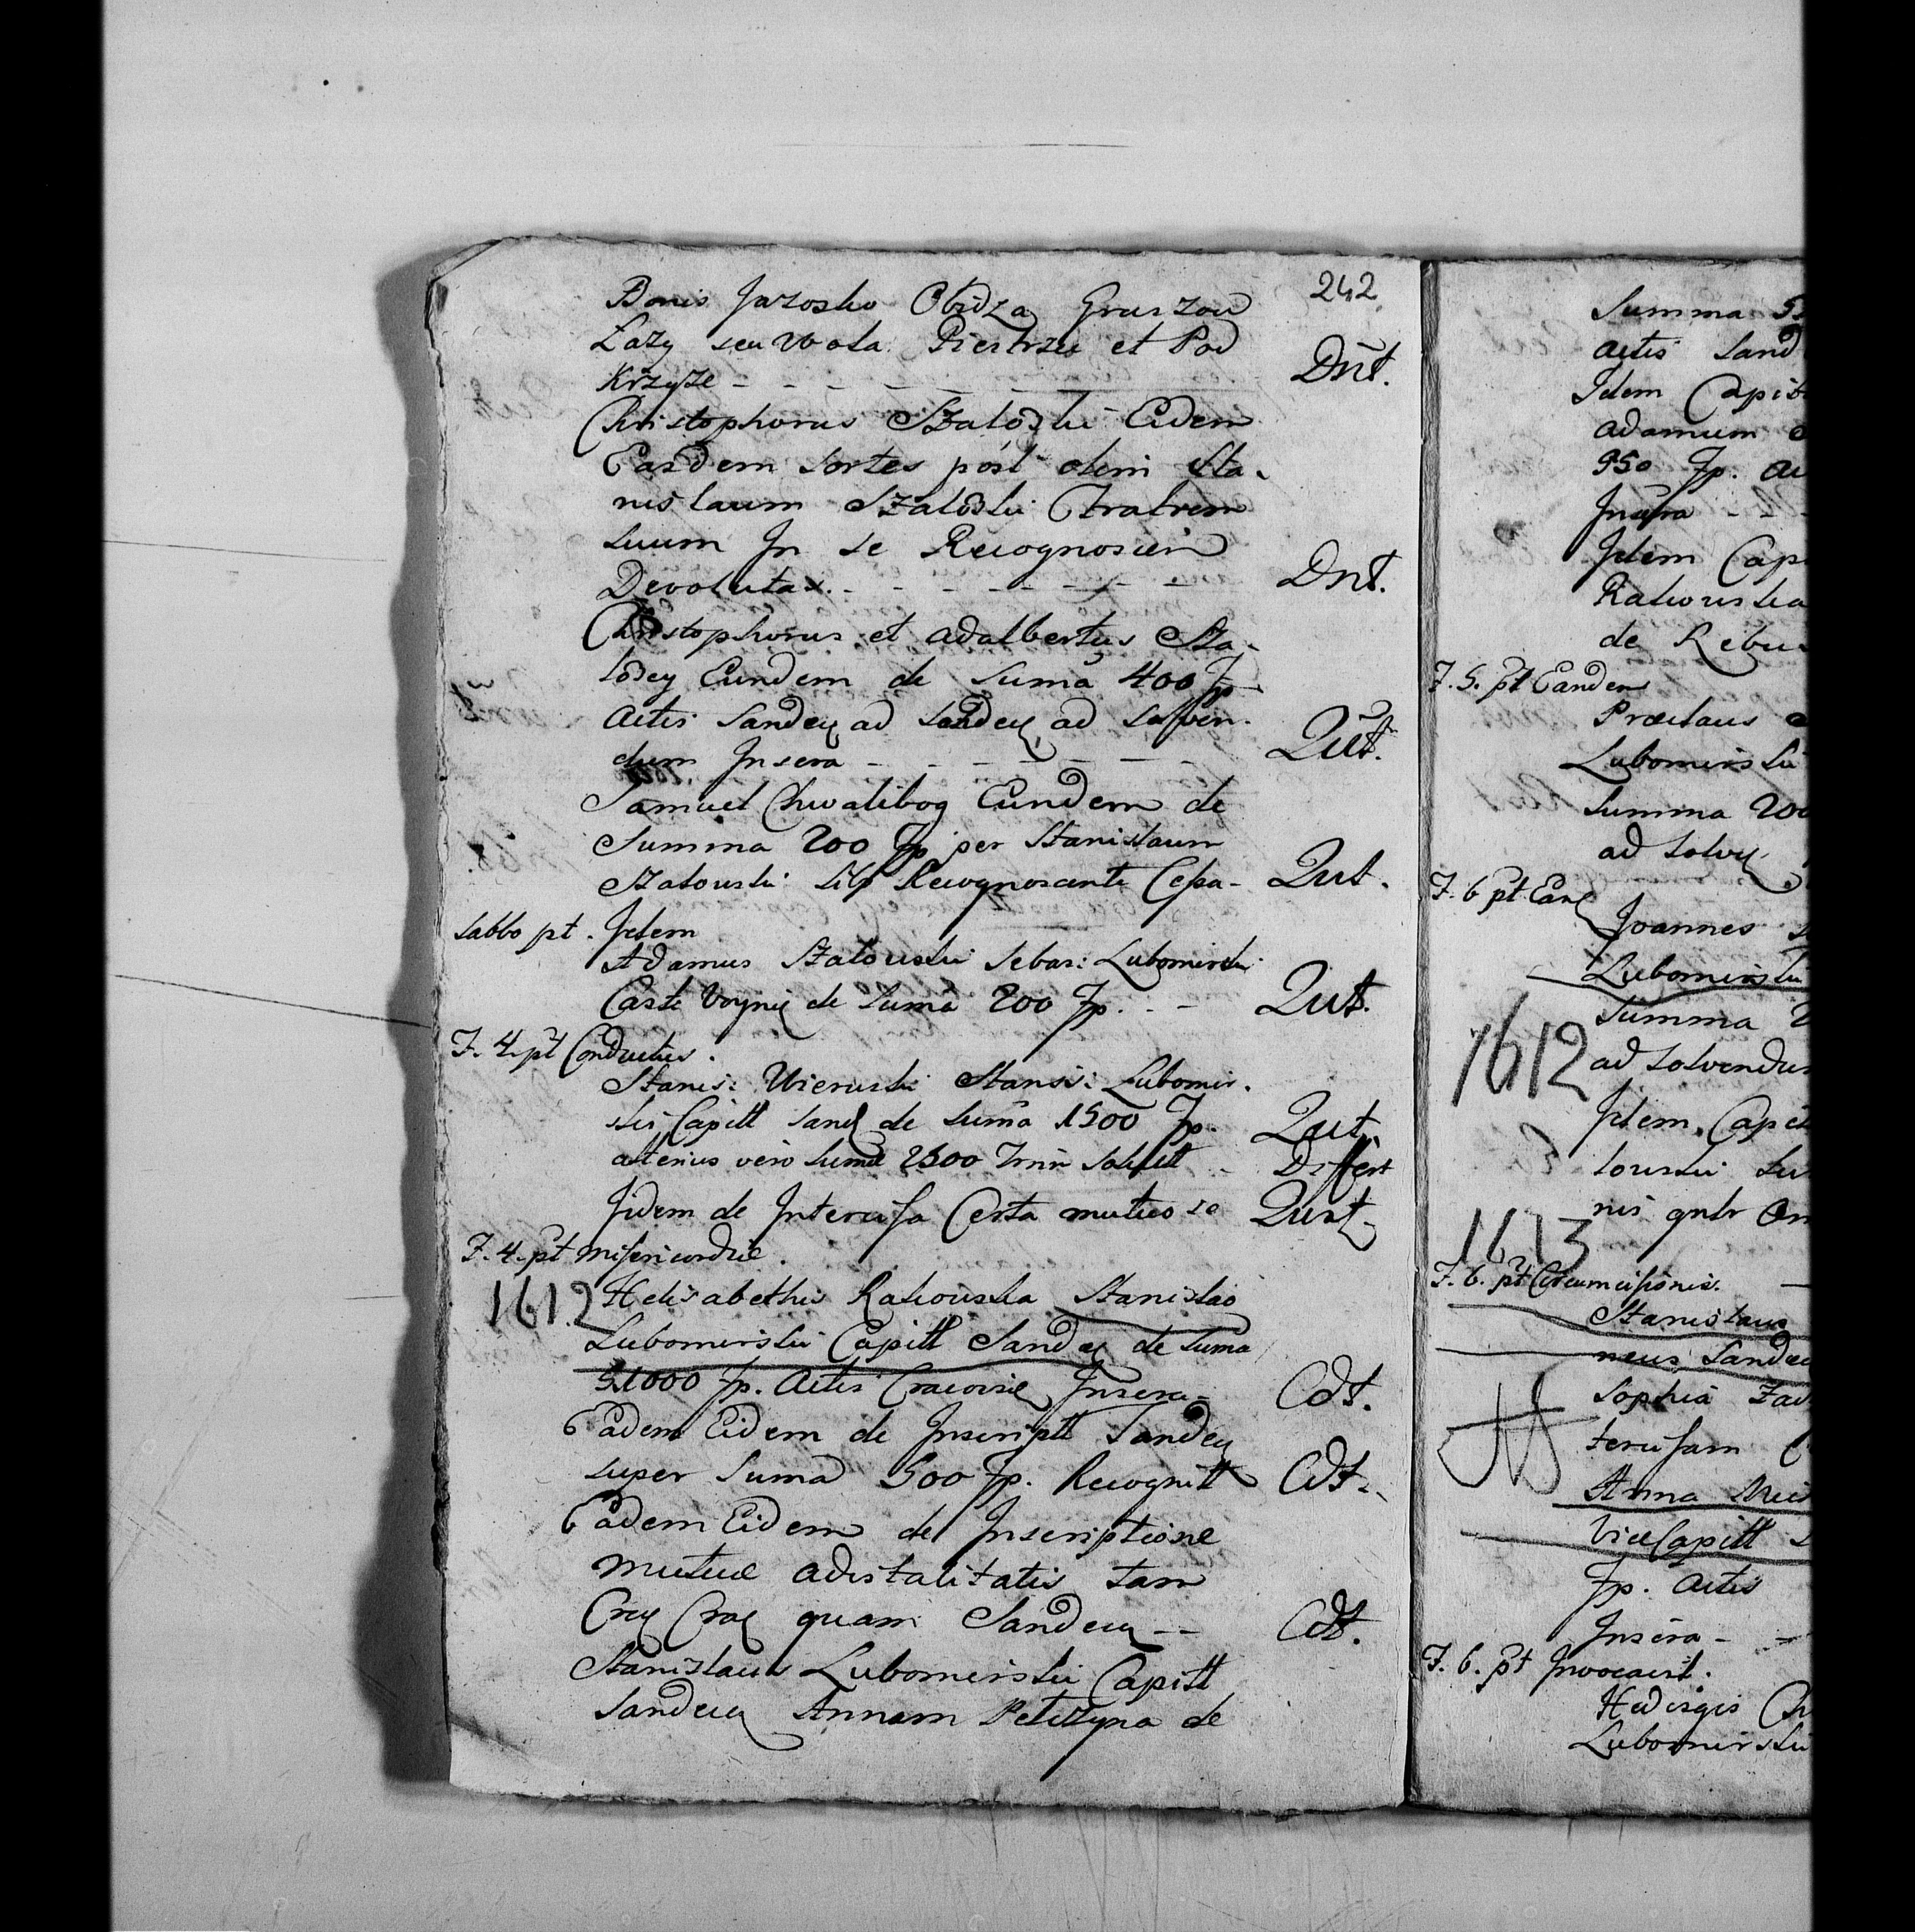 242
Bonis Jazosko Obidza Gruszow
Lazy seu Wola Piestrzec et Pod
Krzyze - - - - - Dnt.
Christophorus Szaloski Eidem
Easdem Sortes post olim Sta-
nislaum Szaloski Fratrem
suum In se Recognoscen
Devolutas. - - - - - - Dnt.
Christophorus et Adalbertus Sza-
loscy Eundem de Suma 400 fp
Actis Sandec ad Sandec ad Solven-
dum Insera - - - - - - Qut.
Samuel Chwalibog Eundem de
Summa 200 fp per Stanislaum
Szalouski sibi Recognoscente Cessa - Qut.
Sabbo pt. Idem
Adamus Szalouski Sebas: Lubomirski
Caste Voynic de Suma 200 fp. - - Qut.
F. 4. pt Conductus.
Stanis: Wieruski Stanis: Lubomir.
ski Capitt Sand de Suma 1500 fp. Qut.
alterius vero Sumae 2500 solutt - Differt
Iidem de Intercisa Certa mutuo se Qunt.
F. 4. pt Misericordiae.
1612 Helisabethis Rakouska Stanislao
Lubomirski Capitt Sandec de Suma
51000 fp. Actis Cracovie Insera - Cdt.
Eadem Eidem de Inscriptt Sandec
super Suma 500 fp. Recognitt Cdt.
Eadem Eidem de Inscriptione
mutuae advitalitatis tam
Crac quam Sandecen - - Cdt.
Stanislaus Lubomirski Capitt
Sandecen Annam de
Summa
Actis Sand
Idem Capit
Adamum
950 fp.
Insera - -
Idem Cap
Rakouska
de Rebu
F. 5. pt Eandem
Lubomirski
Summa 200
ad Solven
F. 6 pt Ean
Joannes
Lubomirski
Summa
1612 ad Solvendum
Idem Capit
louski Su
nis
1613
F. 6. pt Circumcisionis.
Stanislaus
neus Sandec
Sophia Zaw
tercisam
Anna
ViceCapitt
fp. Actis
Insera - -
F. 6. pt Invocavit.
Hedvigis
Lubomirski